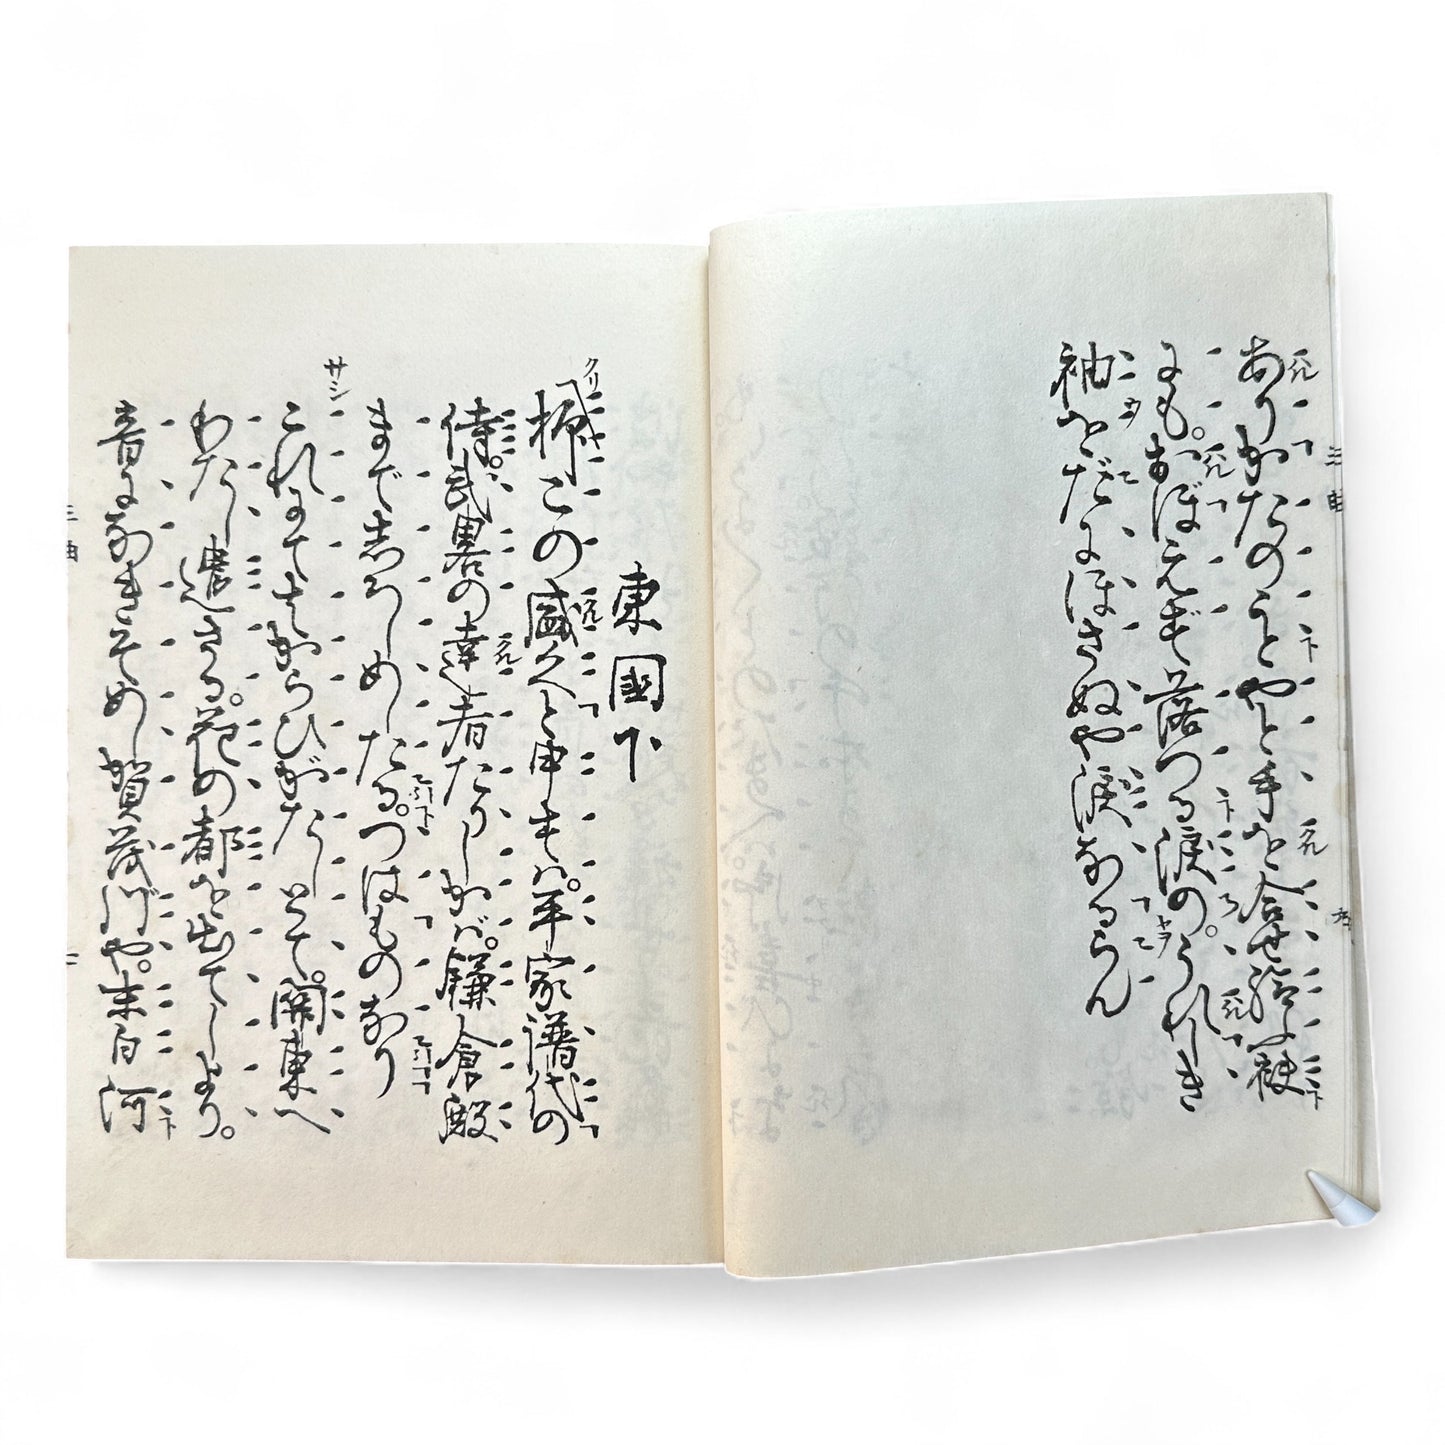 ありがたのうとやと手を合せ給ふ袂
にも。おぼえず落つる涙の。うれしき
袖をだにほさぬや涙なるらん
三曲
東國下
クリ
抑この盛久と申すは。平家譜代の
侍。武略の達者たりしかば。鎌倉殿
まで志ろしめしたる。つはものなり
サシ
これまでもながらひがたしとて。關東へ
わたし遣さる。花の都を出でしより。
音になきそめし賀茂川や。末白河
三曲